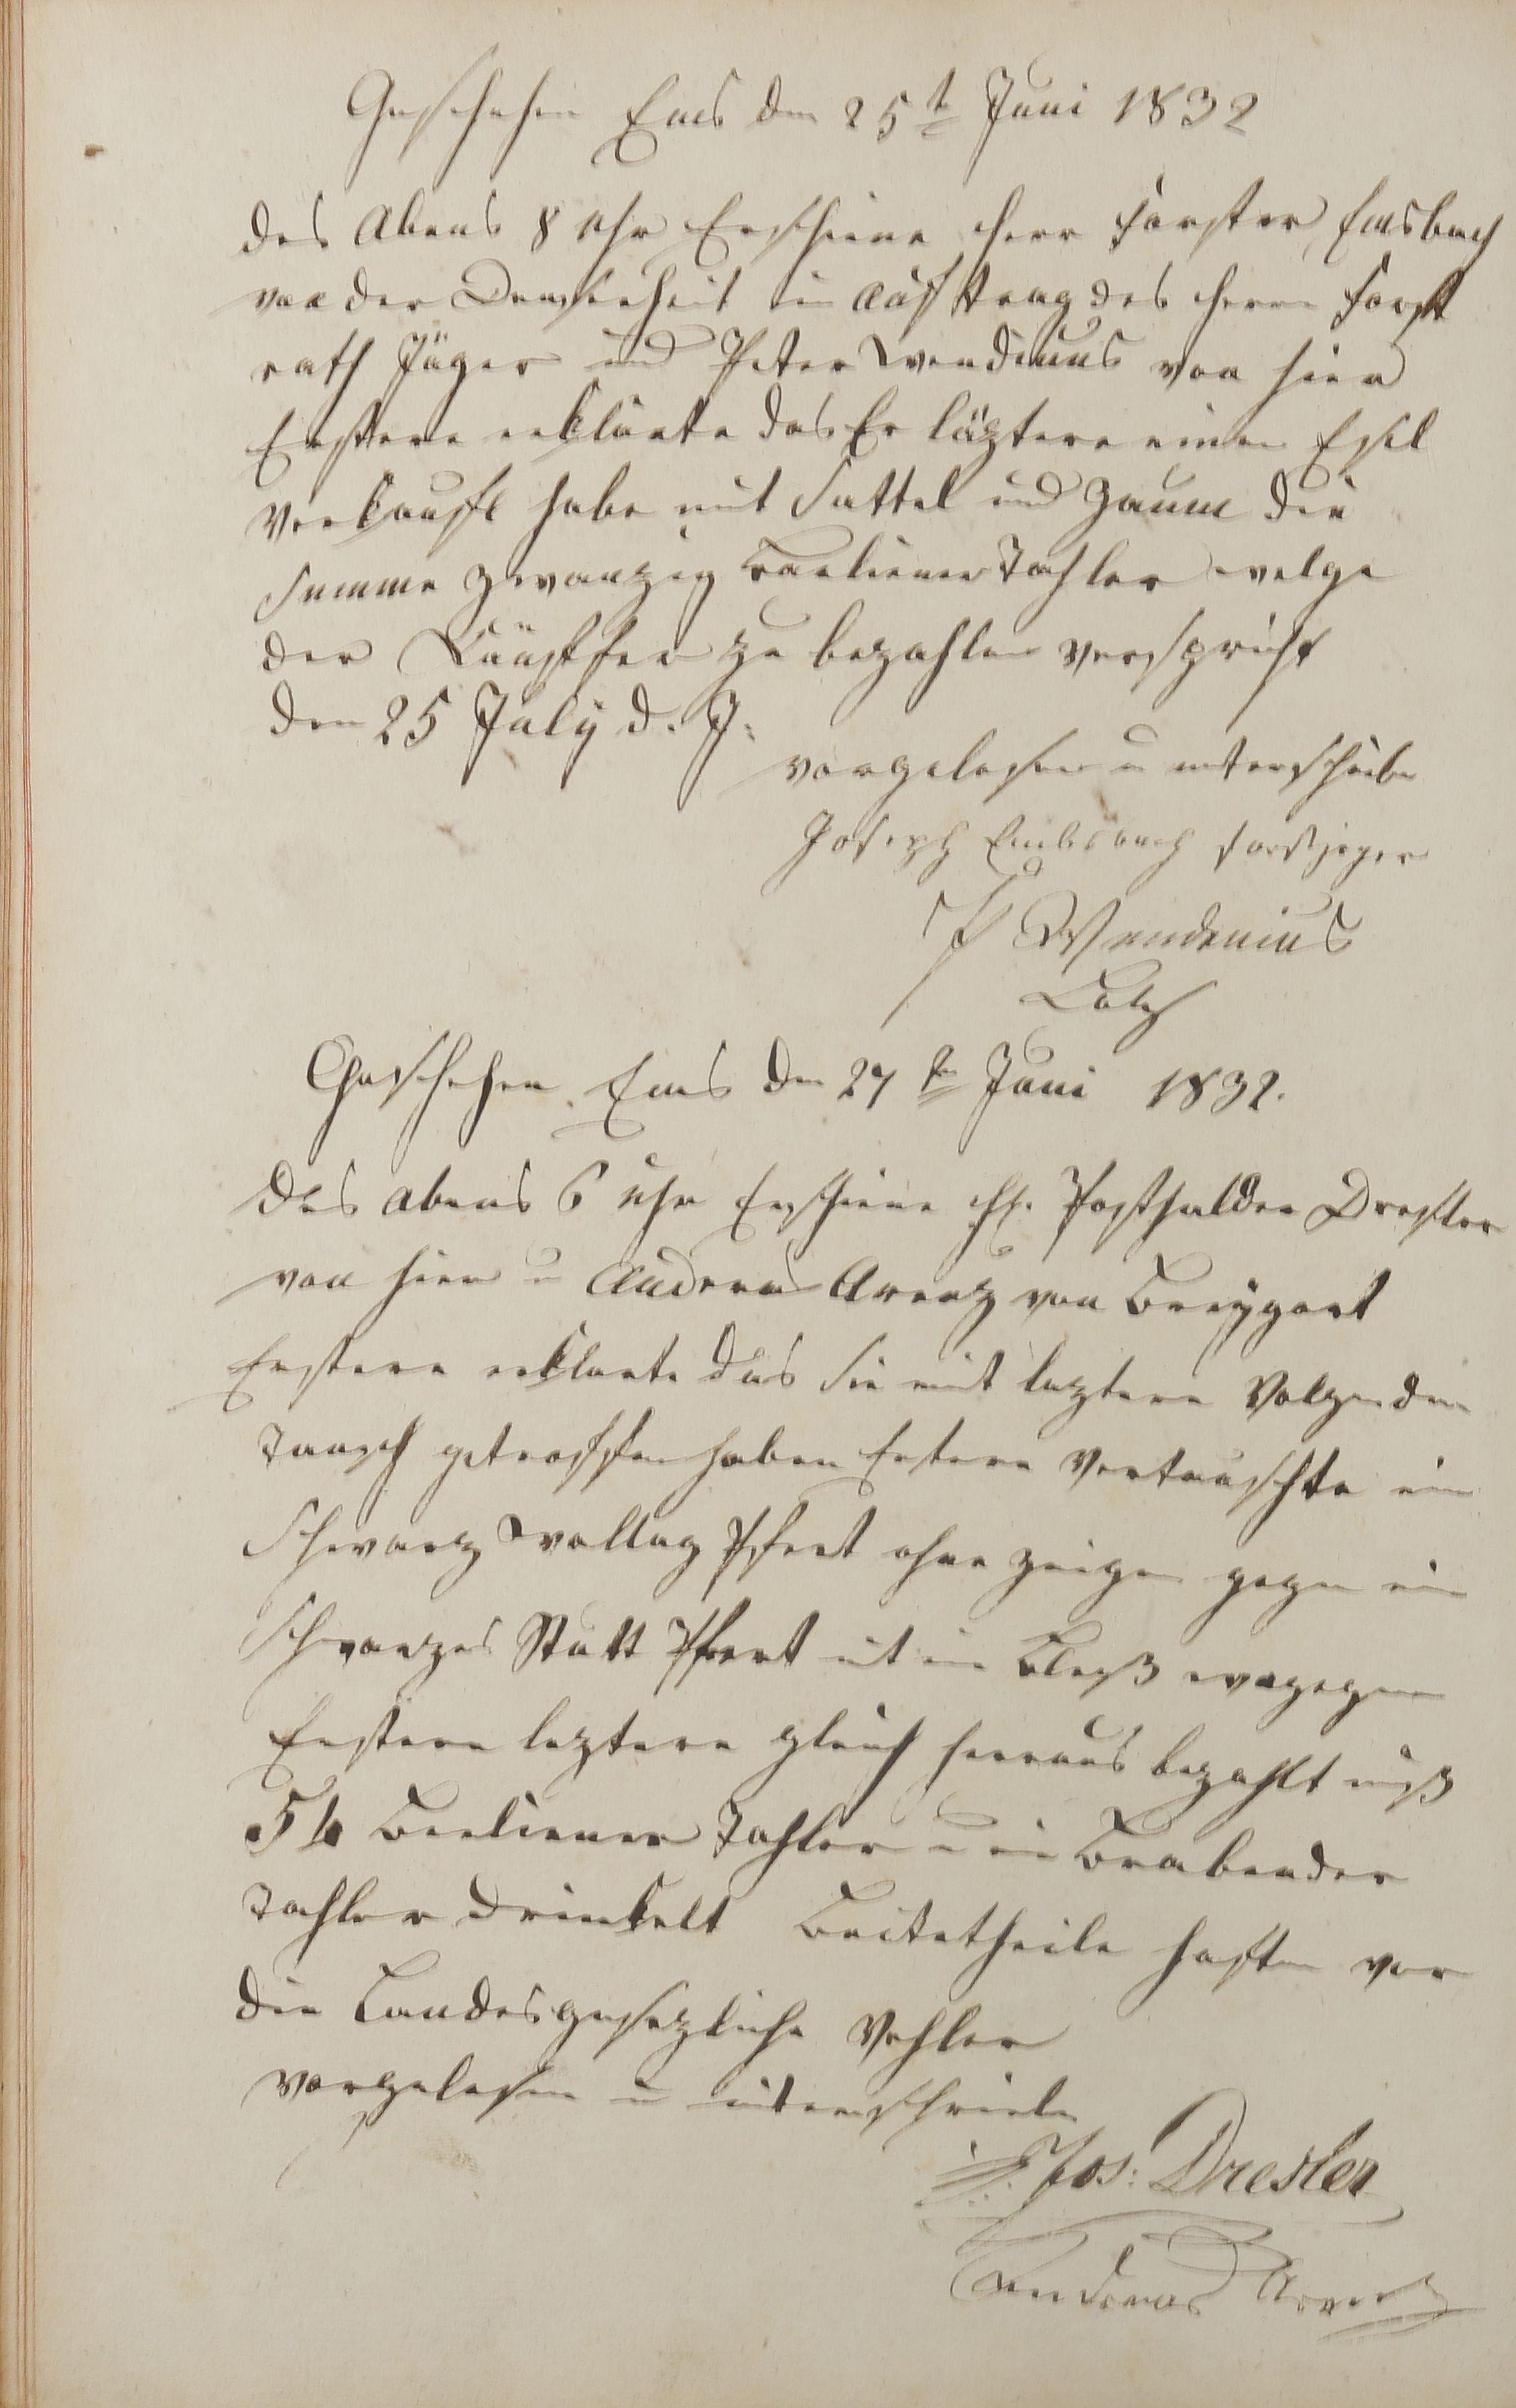 Geschehen Ems den 25t Juni 1832
des Abens 8 uhr Erschiene herr Förster Emsbach
von der in auftrag des herrn Forst
rath Jäger und Peter Wendenius von hier
Erstere erklärte das Er läztere einen Esel
Verkauft habe mit Sattel und Zaum die
Summe zwanzig Berliener Tahler welge
der Käuffer zu bezahlen verspricht
den 25 July d. J.
vorgelesen u unterschrieben
Joseph Embsbach forstjeger
P Wendenius
Geschehen Ems den 27ten Juni 1832.
Des abens 6 uhr Erschiene H. Posthalder Dresler
von hier u Anderas Arenz von
Erstere erklarte das sie mit leztere Volgenden
Tausch getroffen haben Erstere Vertauschte ein
Schwarz Wallag Pfert ohne zeigen gegen ein
Schwarzes Stutt Pfert mit ein Bleß wogegen
Erstere leztere gleich herraus bezahlt muß
54 Berliener Tahler u ein Brabender
Tahler Drinkelt Beitetheile haften vor
die Landesgesezliche Vehler
vorgelesen u unterschrieben
Jos: Dresler
Andreas Arenz